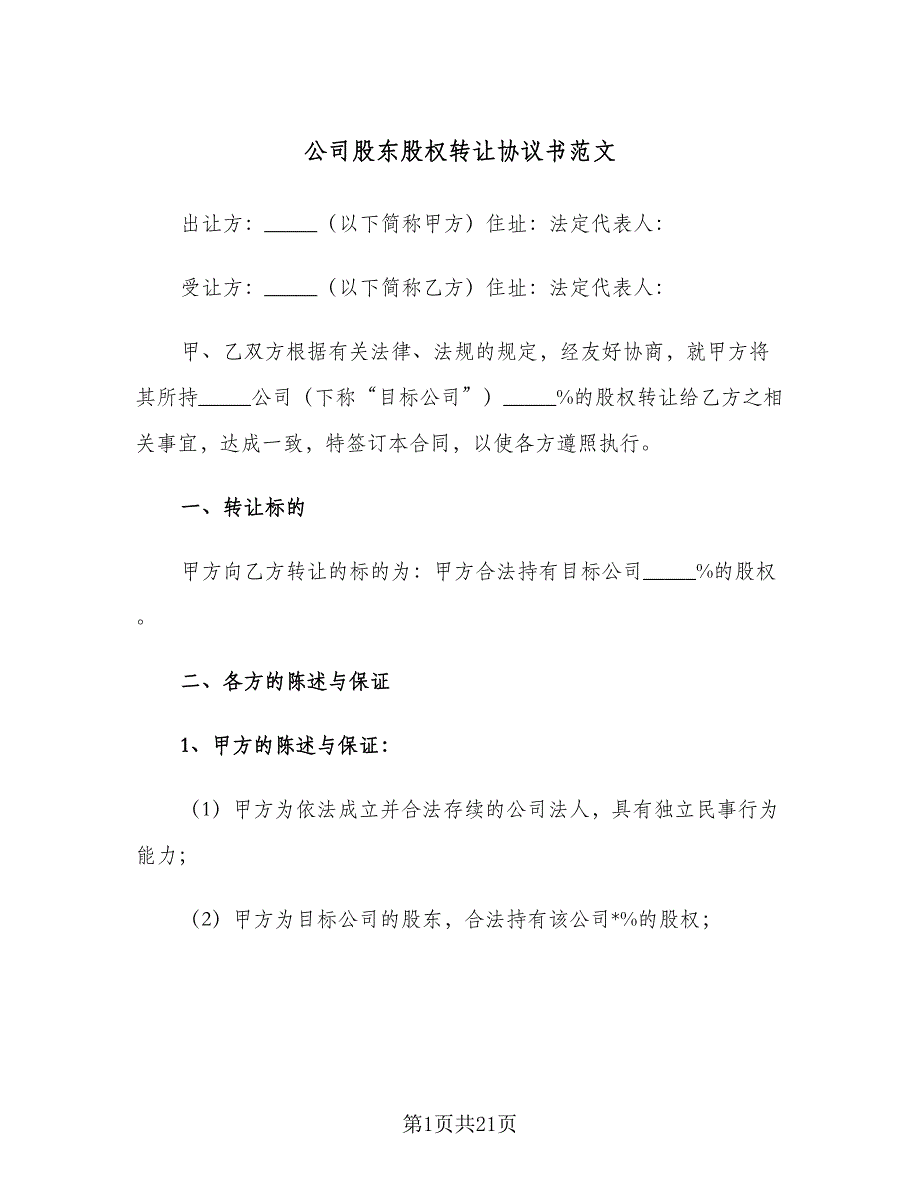 公司股东股权转让协议书范文
出让方：_____（以下简称甲方）住址：法定代表人：
受让方：_____（以下简称乙方）住址：法定代表人：
甲、乙双方根据有关法律、法规的规定，经友好协商，就甲方将
其所持_____公司（下称“目标公司”）_____%的股权转让给乙方之相
关事宜，达成一致，特签订本合同，以使各方遵照执行。
一、转让标的
甲方向乙方转让的标的为：甲方合法持有目标公司_____%的股权
。
二、各方的陈述与保证
1、甲方的陈述与保证：
（1）甲方为依法成立并合法存续的公司法人，具有独立民事行为
能力；
（2）甲方为目标公司的股东，合法持有该公司*%的股权；
第1页共21页